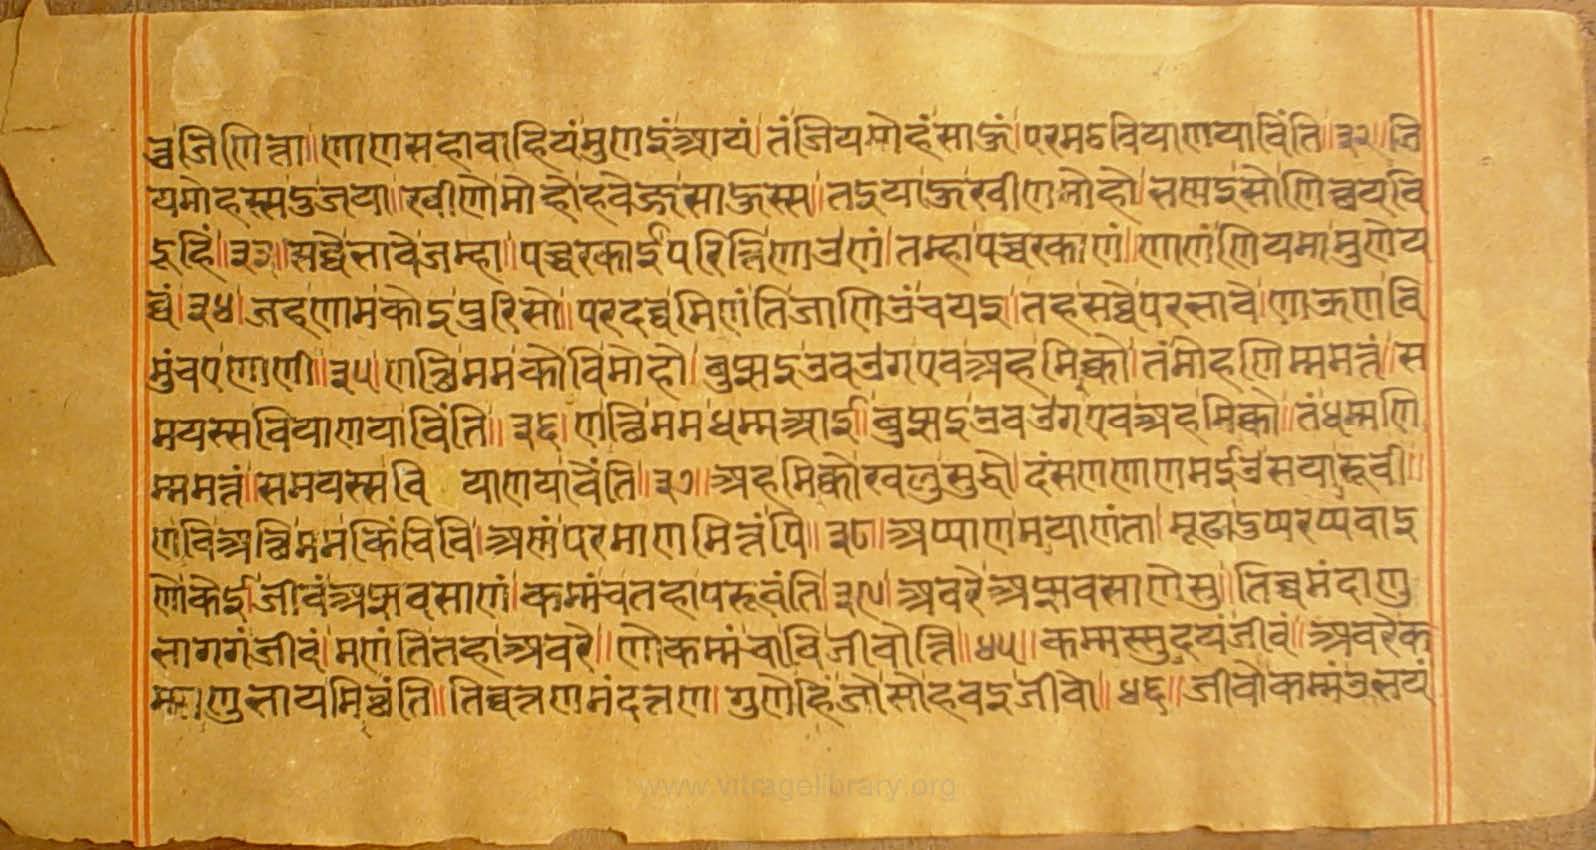 व्वजिणित्ता॥णाणसहावाहियंमुणइंआयं।तंजियमोहंसाऊं।परमठवियाणयाविंति॥३२॥जि
यमोहस्सदुजया॥खीणोमोहोहवेऊसाऊस्स॥तइयाऊखीणमोहो।भणइसोणिच्चयवि
दूहिं॥३३॥सव्वेभावेजम्हा॥पच्चरकाईपरित्तिणाउणं।तम्हापच्चरकाणं॥णाणंणियमामुणेय
व्वं।३४।जहणामकोइपुरिसो॥परदव्वमिणंतिजाणिउंचयइ।तहसव्वेपरभावे।णाऊणवि
मुंचएणाणी॥३५।णत्थिममकोविमोहो।बुझइउवउगएवअहमिक्को।तंमोहणिम्ममत्तं॥स
मयस्सवियाणयाविंति॥३६।णत्थिममधम्मआई॥बुझइउवउगएवअहमिक्को॥तंधम्मणि
म्ममत्तं॥समयस्सवि याणयावेंति॥३७॥अहमिक्कोखलुसुद्धो।दंसणणाणमईउसयारूवी॥
णविअत्थिममकिंचिवि।अणंपरमाणमित्तंपि॥३८।अप्पाणमयाणंता।मूढाउपरप्पवाइ
णोकेई।जीवंअझवसाणं।कम्मंचतहापरूवंति।३९।अवरेअझवसाणेसु।तिव्वमंदाणु
भागगंजीवं।मणंतितहाअवरे॥णोकम्मंचाविजीवोत्ति॥४५॥कम्मस्सुदयंजीवं॥अवरेक
म्माणुभायमिच्छंति॥तिव्वत्तणमंदत्तण।गुणेहिंजोसोहवइजीवो॥४६॥जीवोकम्मंउभयं
www.vitragelibrary.org